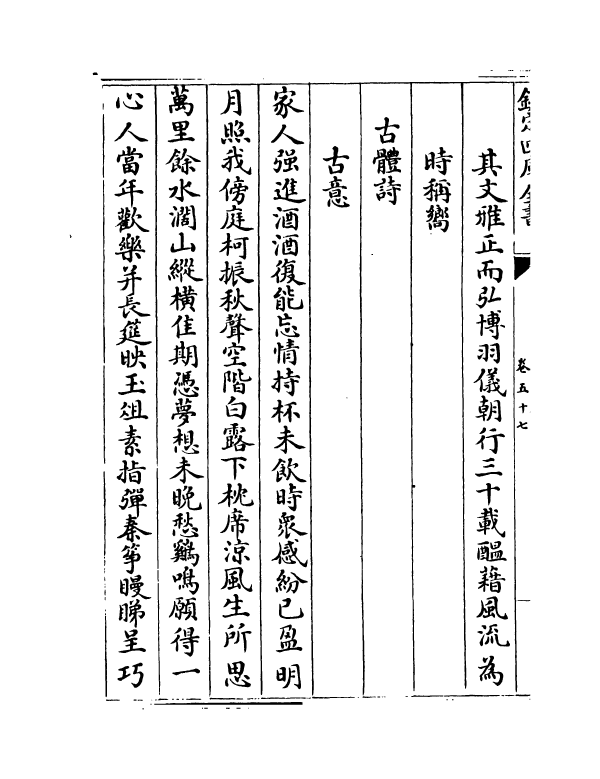 欽定四庫全書
卷五十七
其文雅正而弘博羽儀朝行三十載醖藉風流為
時稱嚮
古體詩
古意
家人强進酒酒復能忘情持杯未飲時衆感紛已盈明
月照我傍庭柯振秋聲空階白露下枕席涼風生所思
萬里餘水濶山縱橫佳期憑夢想未晚愁鷄鳴願得一
心人當年歡樂并長筵映玉俎素指彈秦箏曼睇呈巧